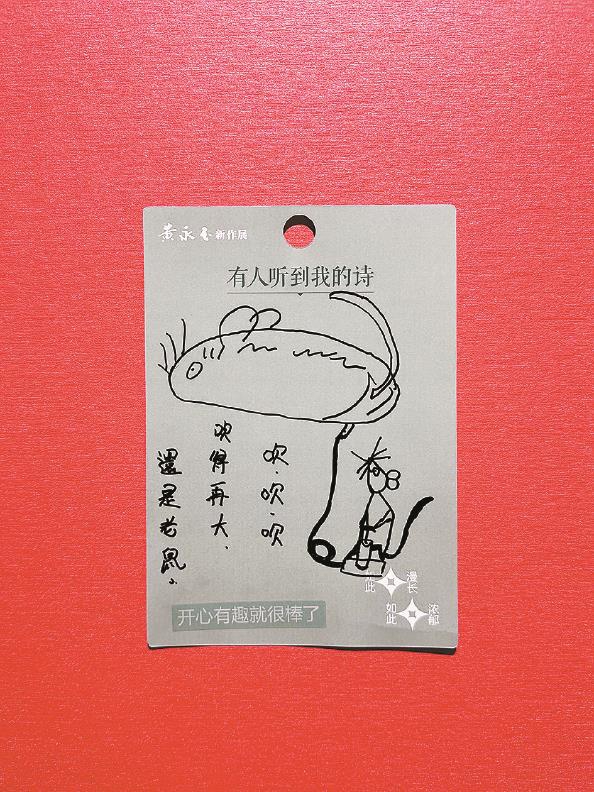 黄永玉新作展
有人听到我的诗
吹·吹·吹
吹得再大、
還是老鼠。
如此漫长
如此浓郁
开心有趣就很棒了